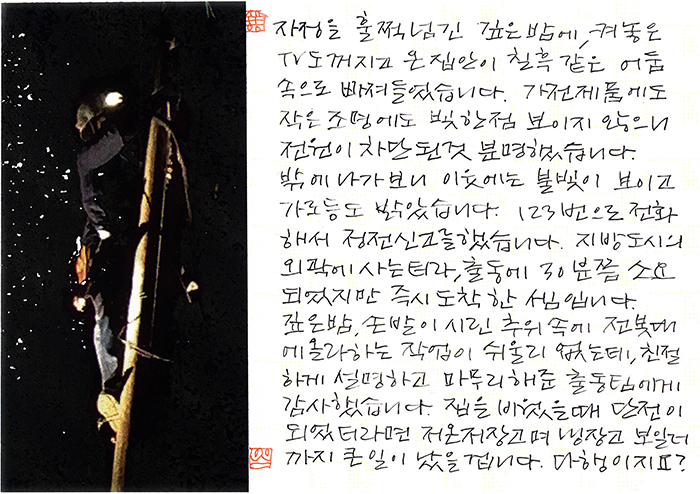 자정을 훌쩍넘긴 깊은밤에, 켜놓은
TV도꺼지고 온집안이 칠흑 같은 어둠
속으로 빠져들었습니다. 가전제품에도
작은조명에도 빛한점 보이지 않으니
전원이 차단된것 분명했습니다.
밖에나가보니 이웃에는 불빛이 보이고
가로등도 밝았습니다. 123번으로 전화
해서 정전신고를했습니다. 지방도시의
외곽에 사는터라, 출동에 30분쯤 소요
되었지만 즉시도착한 셈입니다.
깊은밤, 손발이 시린 추위속에 전봇대
에올라하는 작업이 쉬울리 없는데, 친절
하게 설명하고 마무리해준 출동팀에게
감사했습니다. 집을비웠을때 단전이
되었더라면 저온저장고며 냉장고 보일러
까지 큰일이 났을겁니다. 다행이지요?